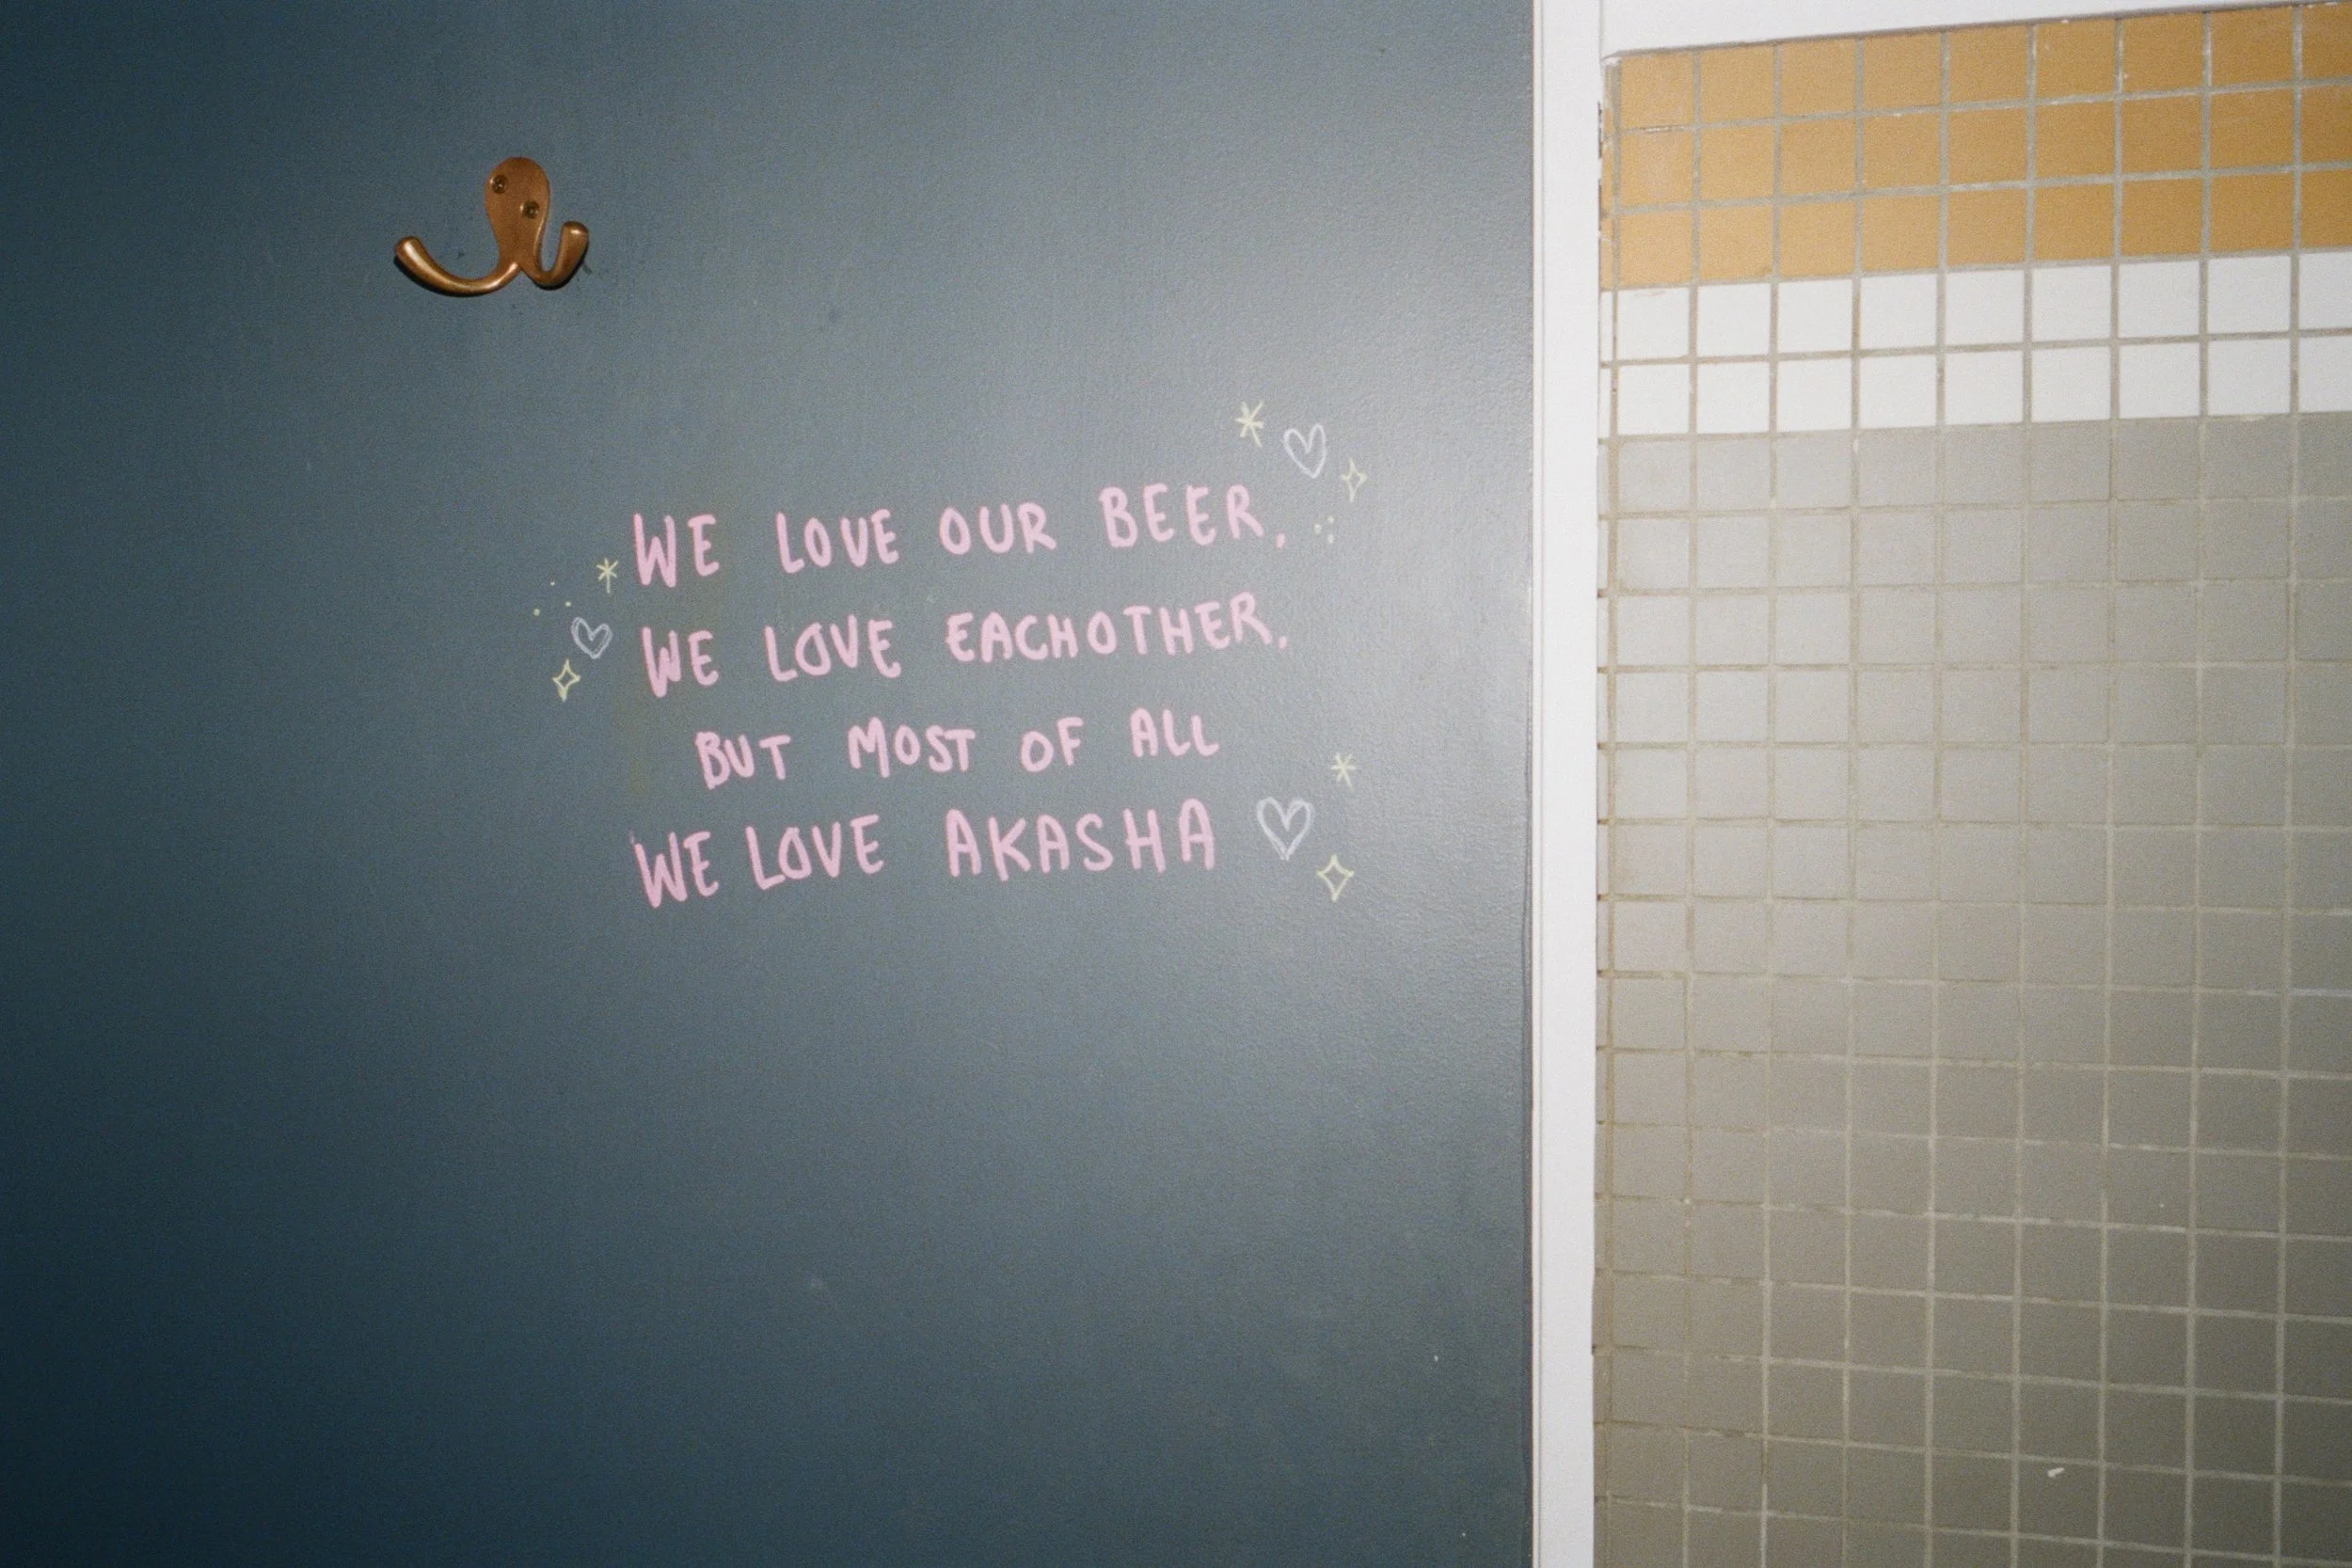 WE LOVE OUR BEER,
WE LOVE EACHOTHER,
BUT MOST OF ALL
WE LOVE AKASHA